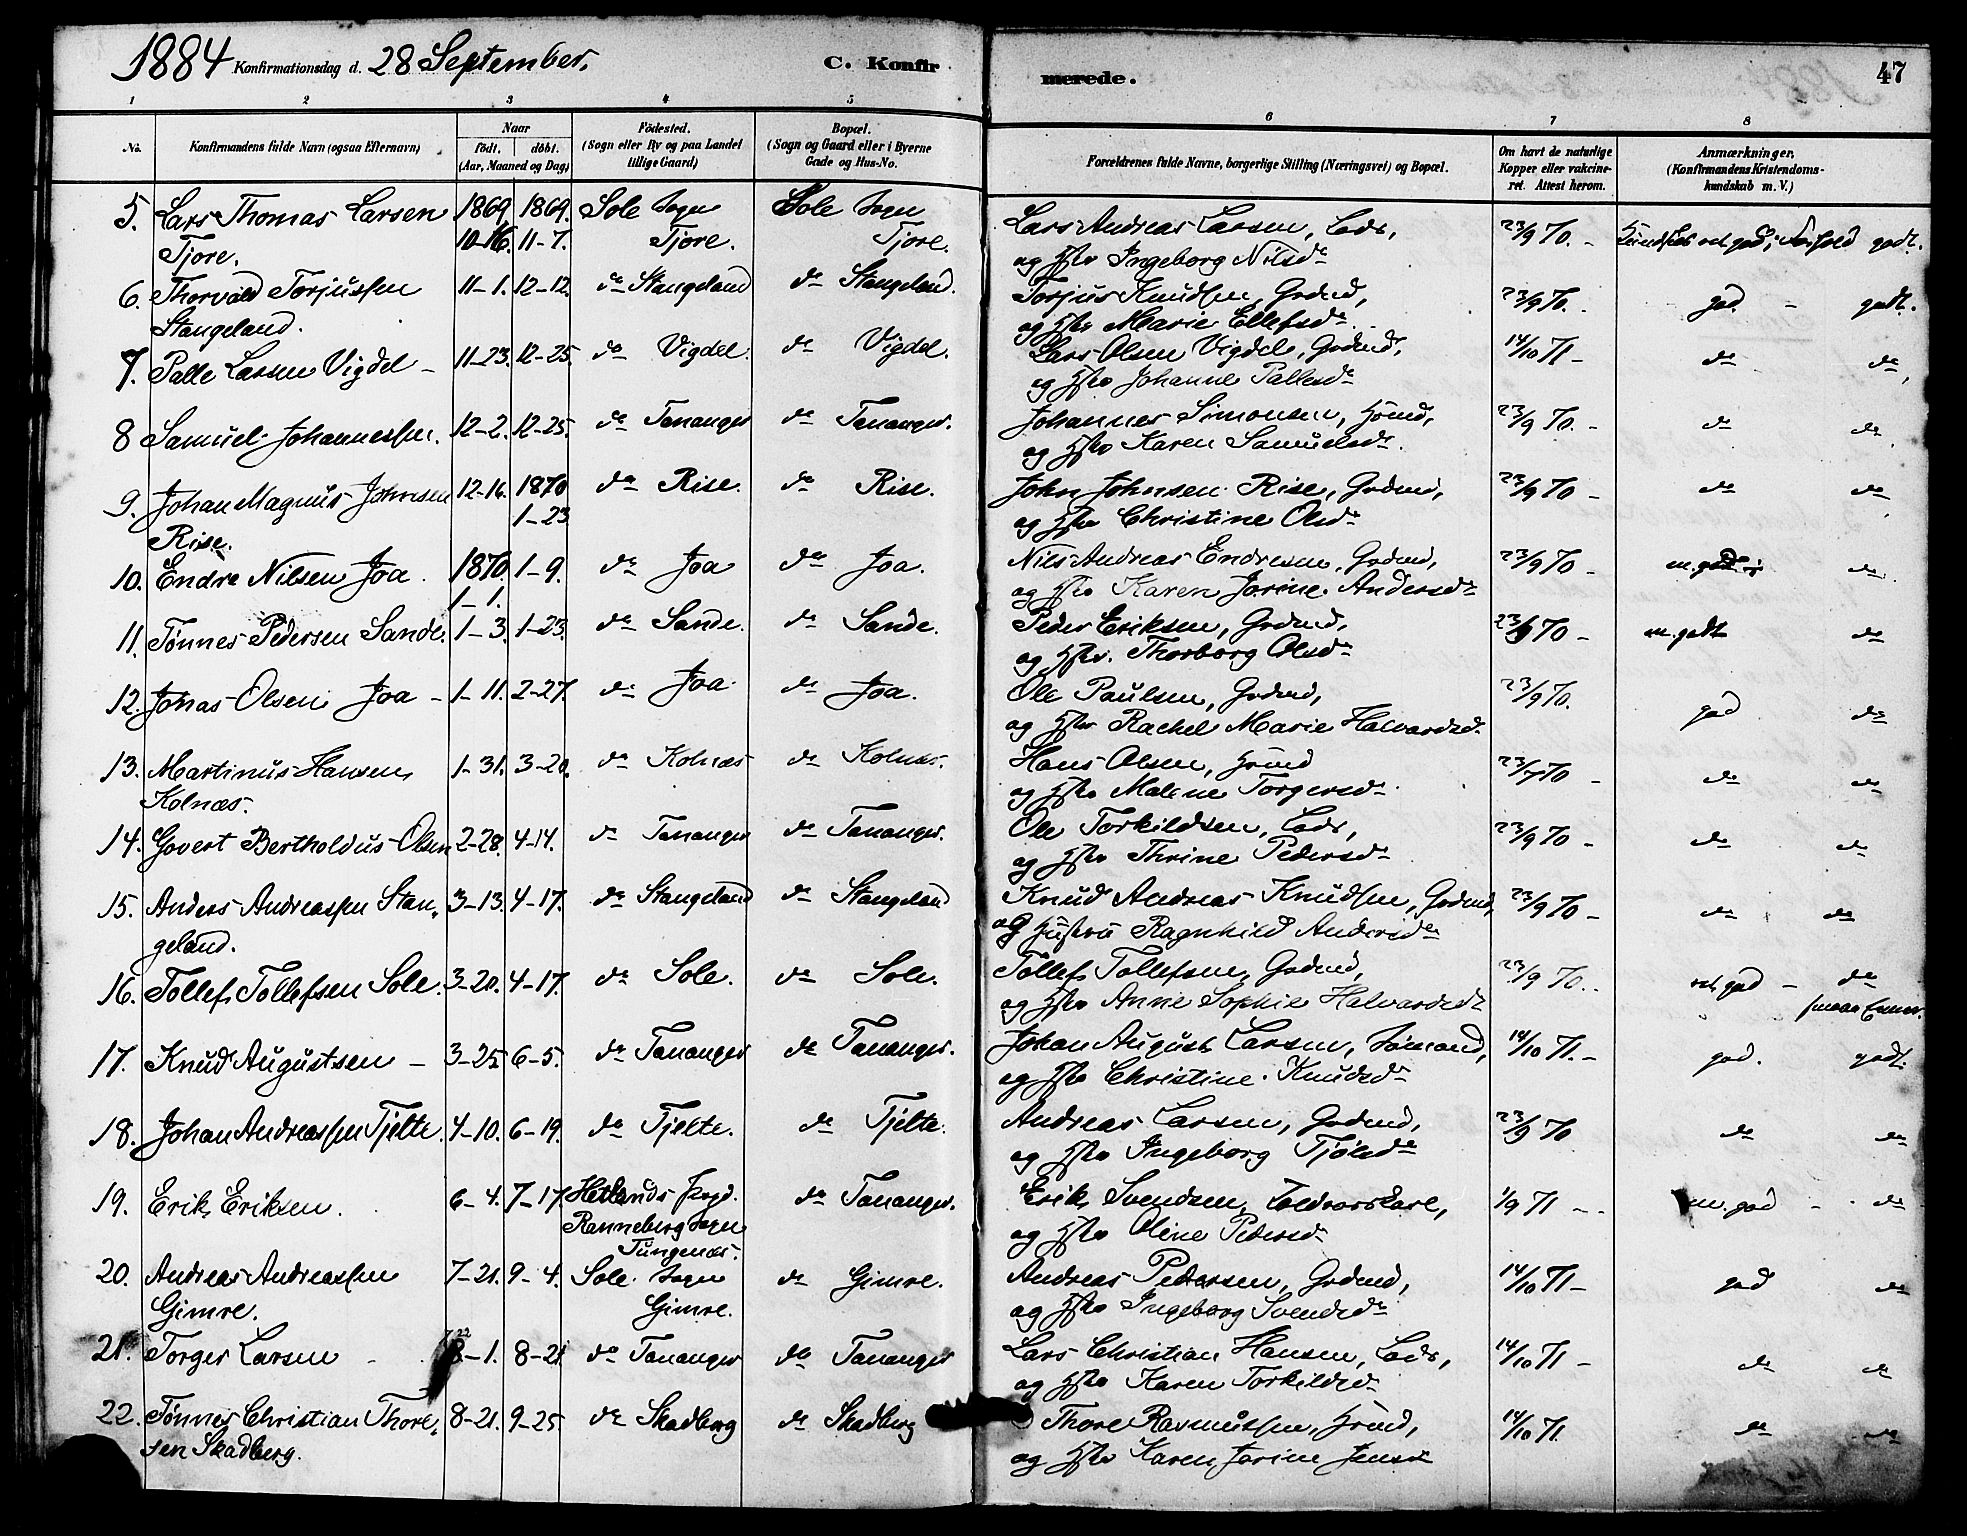 1884 Konfirmationsdag d. 28 September. C. Konfirmerede. 47
1 2 3 4 5 6 7 8
No. Konfirmandens fulde Navn (ogsaa Efternavn) Naar födt. döbt. (Aar, Maaned og Dag) Födested. (Sogn eller By og paa Landet tillige Gaard) Bopæl. (Sogn og Gaard eller i Byerne Gade og Hus-No. Forældrenes fulde Navne, borgerlige Stilling (Næringsvei) og Bopæl. Om havt de naturlige Kopper eller vakcineret. Attest herom. Anmærkninger. (Konfirmandens Kristendomskundskab m. V.)
5. Lars Thomas Larsen 1869 1869. Sole Sogn Sole Sogn Lars Andreas Larsen, Lods, 23/9 70. - Kundskab ret god; Forhold godt.
Tjore. 10-16. 11-7. Tjore. Tjore. og Hstr Ingeborg Nilsdr
6. Thorvald Torjussen 11-1. 12-12. do Stangeland do Stangeland. Torjus Knudsen, Grdmd, 23/9 70. god - godt.
Stangeland. og Hstr Marie Ellefsdr
7. Palle Larsen Vigdel - 11-23. 12-25. do Vigdel. do Vigdel. Lars Olsen Vigdel, Grdmd, 14/10 71 - do do
og Hstr Johanne Pallesdr
8 Samuel Johannessen. 12-2. 12-25. do Tananger do Tananger. Johannes Simonsen, Hsmd, 23/9 70. - do do
og Hstr Karen Samuelsdr
9. Johan Magnus Johnsen 12-16. 1870 do Rise. do Rise. John Johnsen Rise, Grdmd, 23/9 70 - do do
Rise. 1-23 og Hstr Christine Olsdr
10. Endre Nilsen Joa. 1870. 1-9. do Joa do Joa. Nils Andreas Endresen, Grdmd, 23/9 70 - m. god do
1-1. og Hstr Karen Jorine Andersdr
11. Tønnes Pedersen Sande. 1-3. 1-23. do Sande. do Sande. Peder Eriksen, Grdmd, 23/9 70 - m. godt do
og Hstr. Thorborg Olsdr
12. Jonas Olsen Joa - 1-11. 2-27. do Joa do Joa. Ole Paulsen, Grdmd, 23/9 70. god do
og Hstr Rachel Marie Halvardsd.
13. Martinus Hansen 1-31. 3-20. do Kolnæs do Kolnæs. Hans Olsen, Hsmd 23/7 70 - do do
Kolnæs. og Hstr Malene Torgersdr
14. Govert Bertholdus Olsen 2-28. 4-14. do Tananger do Tananger. Ole Torkildsen, Lods, 23/9 70 - do do
og Hstr Thrine Pedersdr
15. Anders Andreassen Stan- 3-13. 4-17. do Stangeland do Stangeland Knud Andreas Knudsen, Grdmd, 23/9 70 - do do
geland. og Hustru Ragnhild Andersdr
16. Tollef Tollefsen Sole. 3-20. 4-17. do Sole. do Sole. Tollef Tollefsen, Grdmd, 23/9 70. - ret god - do
og Hstr Anne Sophie Halvardsdr
17. Knud Augustsen - 3-25 6-5. do Tananger do Tananger. Johan August Larsen, Sømand, 14/10 71. - god. godt.
og Hstr Christine Knudsdr
18. Johan Andreassen Tjelte. 4-10. 6-19. do Tjelte. do Tjelte. Andreas Larsen, Grdmd, 23/9 70 do do
og Hstr Ingeborg Tjølsdr
19. Erik Eriksen. 6-4. 7-17. Hetlands Prgd. do Tananger. Erik Svendsen, Toldvorskarl, 1/9 71 - - m. god - do
Ranneberg Sogn og Hstr Oline Pedersdr
Tungenæs.
20. Andreas Andreassen 7-21. 9-4. Sole Sogn do Gimre. Andreas Pedersen, Grdmd, 14/10 71 - god do
Gimre. Gimre. og Hstr Ingeborg Svendsdr
21. Torger Larsen - 8-1. 8-21 do Tananger do Tananger Lars Christian Hansen, Lods, 14/10 71 - do do
og Hstr Karen Torkildsdr
22. Tønnes Christian Thore- 8-21. 9-25. do Skadberg do Skadberg Thore Rasmussen, Hsmd, 14/10 71. do do
sen Skadberg. og Hstr Karen Jorine Jensdr